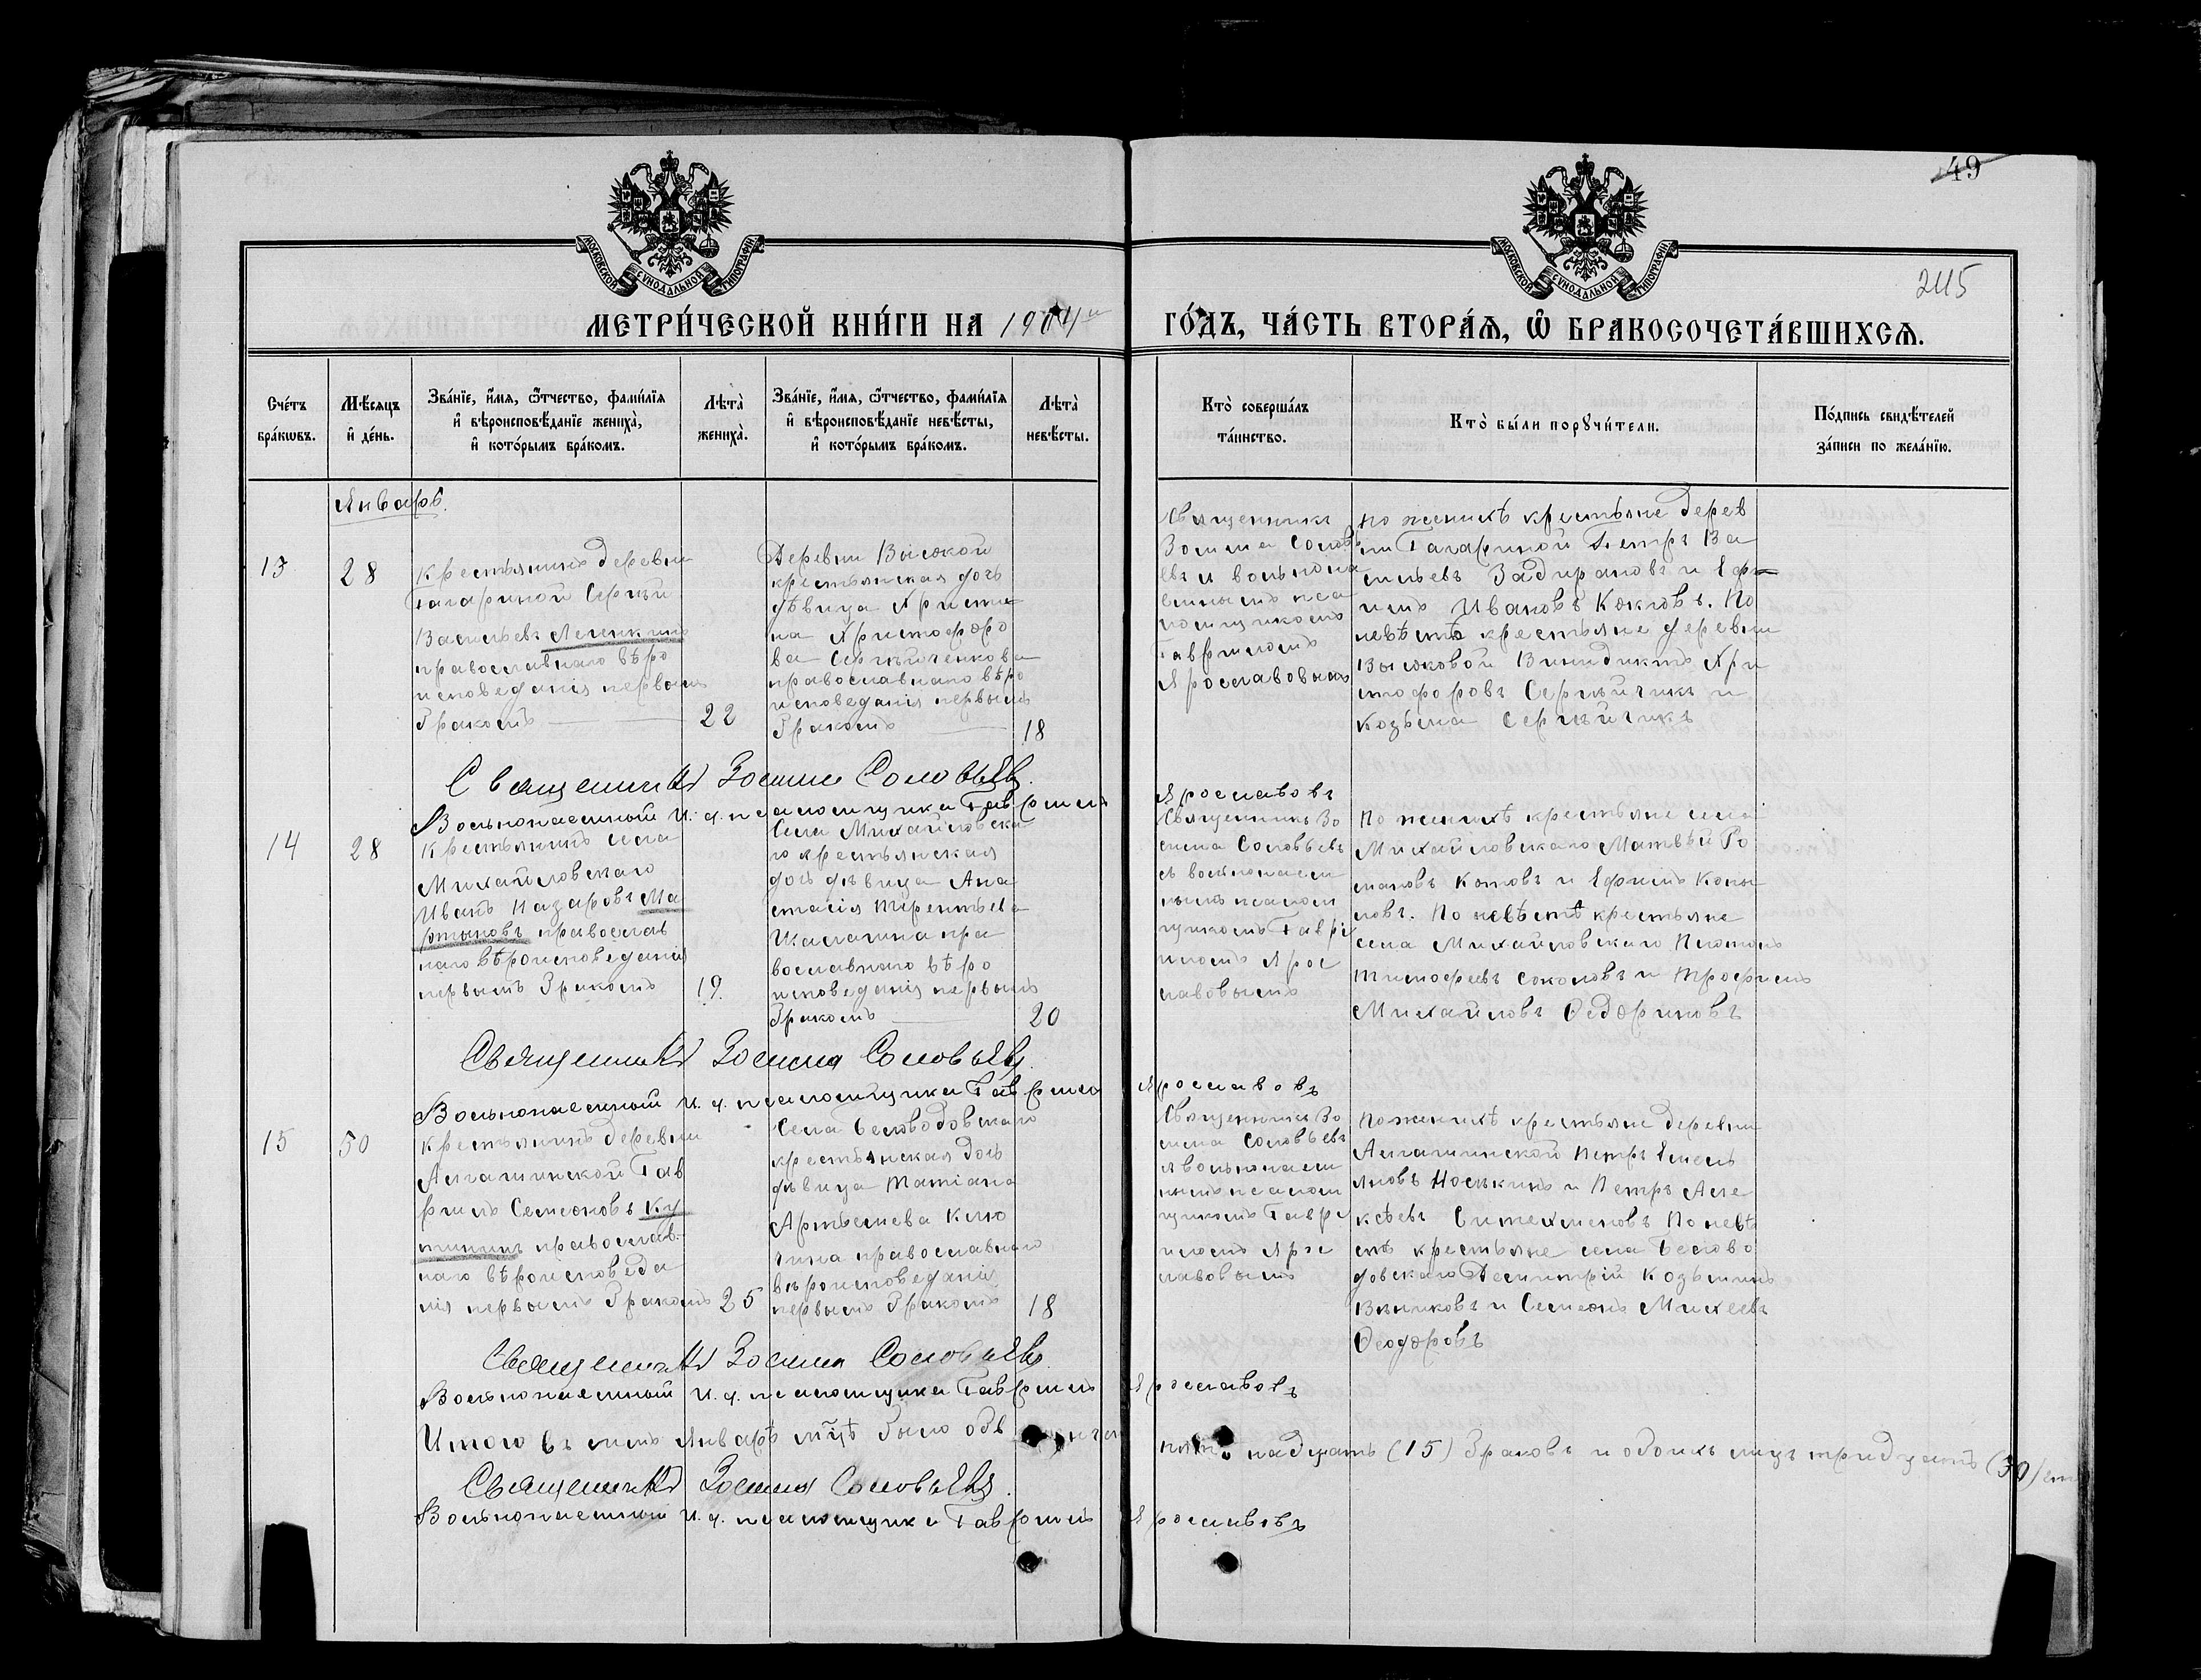 49
245
МОСКОВСКОЙ СУНОДАЛЬНОЙ ТИПОГРАФІИ
МОСКОВСКОЙ СУНОДАЛЬНОЙ ТИПОГРАФІИ
МЕТРИ́ЧЕСКОЙ КНИ́ГИ НА 1904й ГО́ДЪ, ЧА́СТЬ ВТОРА́Ѧ, Ѽ БРАКОСОЧЕТА́ВШИХСѦ.
Сче́тъ
бра́кѡвъ.
Мѣ́сяцъ
и҆ де́нь.
Зва́нїе, и҆́мя, ѻ҆́тчество, фами́лїя
и҆ вѣроисповѣ́данїе жениха̀,
и҆ кото́рымъ бра́комъ.
Лѣта̀
жениха̀.
Зва́нїе, и҆́мя, ѻ҆́тчество, фами́лїя
и҆ вѣроисповѣ́данїе невѣ́сты,
и҆ кото́рымъ бра́комъ.
Лѣта̀
невѣ́сты.
Кто̀ соверша́лъ
та́инство.
Кто̀ бы́ли порꙋчи́тели.
По́дпись свидѣ́телей
за́писи по жела́нїю.
Январь.
13
28
Крестьянинъ деревни
Гагариной Сергѣй
Васильевъ
православнаго вѣро
исповеданія первымъ
бракомъ
22
Деревни Высокой
крестьянская дочь
дѣвица Христи
на Христофоро
ва Сергѣйченкова
православнаго вѣро
исповеданія первымъ
бракомъ
18
Священникъ
Зосима Соловь
евъ и вольнона
емнымъ пса
ломщикомъ
Гавріиломъ
Ярославовымъ
по женихѣ крестьяне дерев
ни Гагариной Петръ Ва
сильевъ Задирановъ и Еф
имъ Ивановъ Коктовъ. По
невѣстѣ крестьяне деревни
Высоковой Винидиктъ Хри
стофоровъ Сергѣйчикъ и
Козьма Сергѣйчикъ
Священникъ Зосима Соловьевъ.
Вольнонаемный И. д. псаломщика Гавріилъ Ярославовъ
14
28
Крестьянинъ села
Михайловскаго
Иванъ Назаровъ Ма
ртыновъ православ
наго вѣроисповеданія
первымъ бракомъ
19.
Села Михайловска
го крестьянская
дочь дѣвица Ана
стасія Терентьева
Шалагина пра
вославнаго вѣро
исповеданія первымъ
бракомъ
20
Священникъ Зо
сима Соловьевъ
съ вольнонаем
нымъ псалом
щикомъ Гаврі
иломъ Ярос
лавовымъ
По женихѣ крестьяне села
Михайловскаго Матвѣй Ро
мановъ Котовъ и Ефимъ Копы
ловъ. По невѣстѣ крестьяне
села Михайловскаго Платонъ
Тимофеевъ Соколовъ и Трофимъ
Михайловъ Ѳедориновъ
Священникъ Зосима Соловьевъ.
Вольнонаемный И. д. псаломщика Гавріилъ Ярославовъ
15
30
Крестьянинъ деревни
Алгаштинской Гав
ріилъ Семеновъ Ку
тининъ православ
наго вѣроисповеда
нія первымъ бракомъ
25
Села Беловодовскаго
крестьянская дочь
дѣвица Татіана
Артемьева Клю
кина православнаго
вѣроисповеданія
первымъ бракомъ
18
Священникъ Зо
сима Соловьевъ
и вольнонаем
нымъ псалом
щикомъ Гаврі
иломъ Яро
славовымъ
По женихѣ крестьяне деревни
Алгаштинской Петръ Емель
яновъ Носкинъ и Петръ Але
ксѣевъ По невѣ
стѣ крестьяне села Белово
довскаго Дмитрій Козьминъ
Вѣниковъ и Семенъ Михеевъ
Ѳеодоровъ
Священникъ Зосима Соловьевъ
Вольнонаемный И. д. псаломщика Гавріилъ Ярославовъ
Итого въ семъ Январѣ мѣ́цѣ было пятнадцать (15) браковъ и обоихъ лицъ тридцать (30)
Священникъ Зосима Соловьевъ.
Вольнонаемный И. д. псаломщика Гавріилъ Ярославовъ